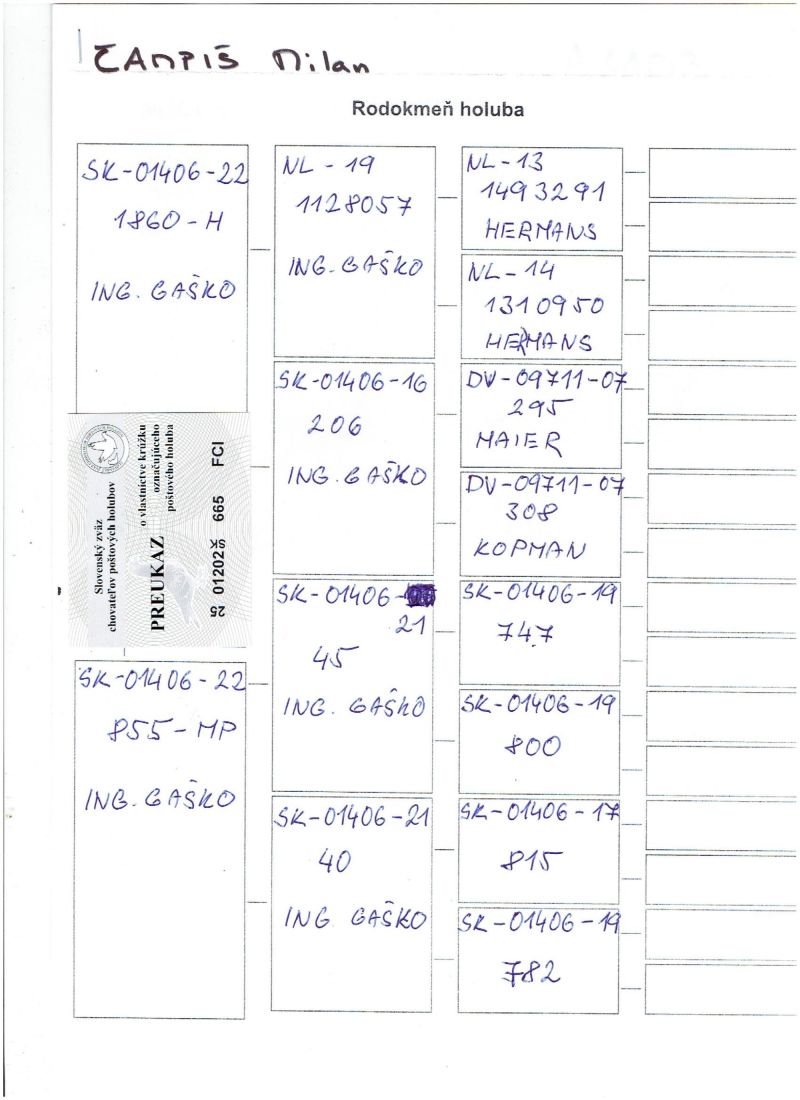 ČAMPIŠ Milan
Rodokmeň holuba
SK-01406-22
1860-H
ING. GAŠKO
Slovenský zväz
chovateľov poštových holubov
PREUKAZ
o vlastníctve krúžku
označujúceho
poštového holuba
25 01202 SK 665 FCI
SK-01406-22
855-MP
ING. GAŠKO
NL - 19
1128057
ING. GAŠKO
SK-01406-16
206
ING. GAŠKO
SK-01406-
21
45
ING. GAŠKO
SK-01406-21
40
ING GAŠKO
NL-13
1493291
HERMANS
NL-14
1310950
HERMANS
DV-09711-07
295
MAIER
DV-09711-07
308
KOPMAN
SK-01406-19
747
SK-01406-19
800
SK-01406-17
815
SK-01406-19
782